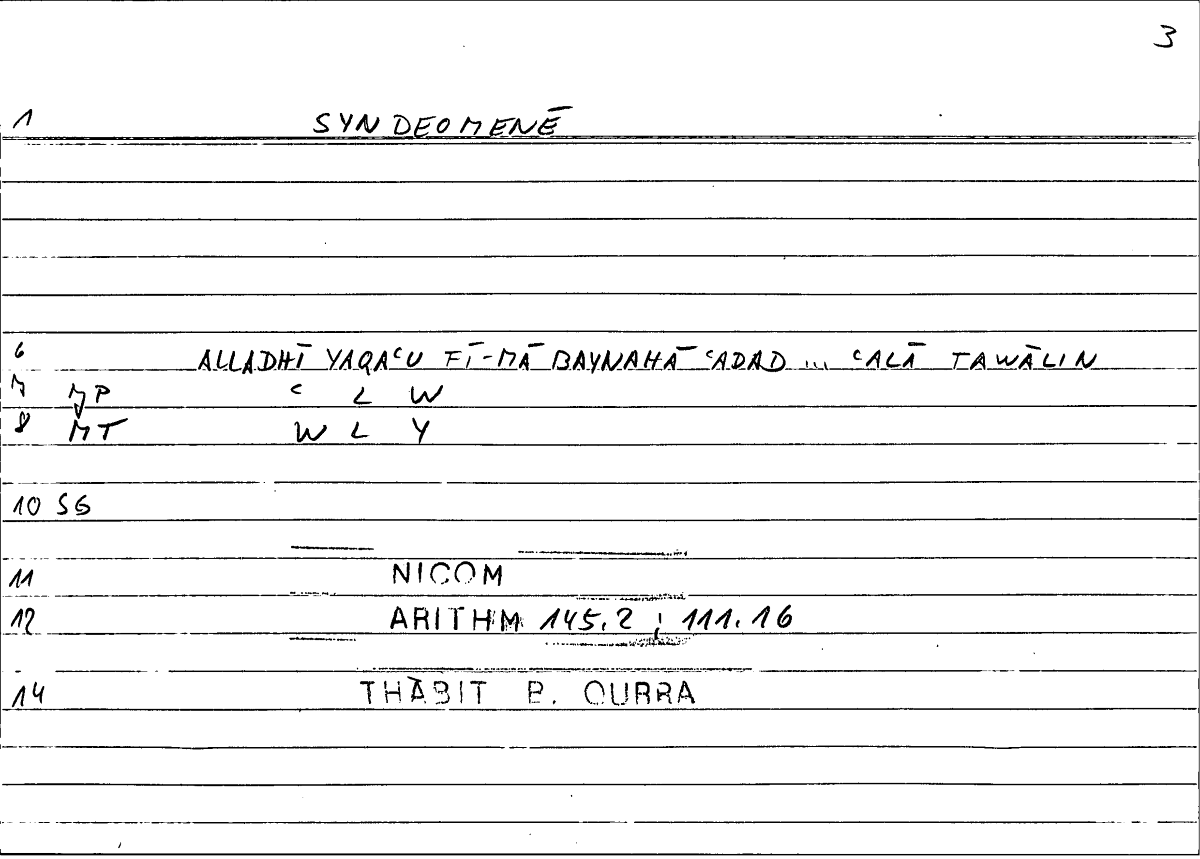 3
1 SYNDEOMENĒ
6 ALLADHĪ YAQAᶜU FĪ-MĀ BAYNAHĀ ᶜADAD ... ᶜALĀ TAWĀLIN
7 ᶜ L W
8 MT W L Y
10 SG
11 NICOM
12 ARITHM 145.2 ; 111.16
14 THĀBIT B. QURRA